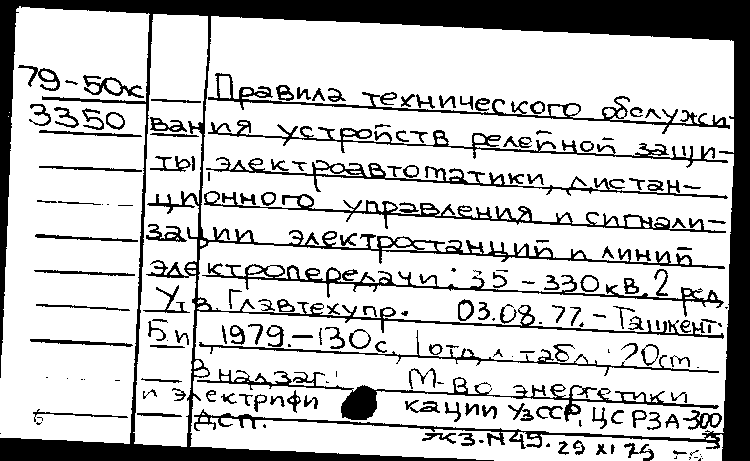 79-50к Правила технического обслужи-
3350 вания устройств релейной защи-
ты, электроавтоматики, дистан-
ционного управления и сигнали-
зации электростанций и линий
электропередачи: 35-330 кВ. 2 ред.
Утв. Главтехупр. 03.08.77.-Ташкент:
Б.и., 1979.-130 с., 1 отд. л. табл.; 20 см.
В надзаг.: М-во энергетики
и электрифи кации УзССР, ЦСРЗА-300
ДСП.
экз. №49. 29 XI 79